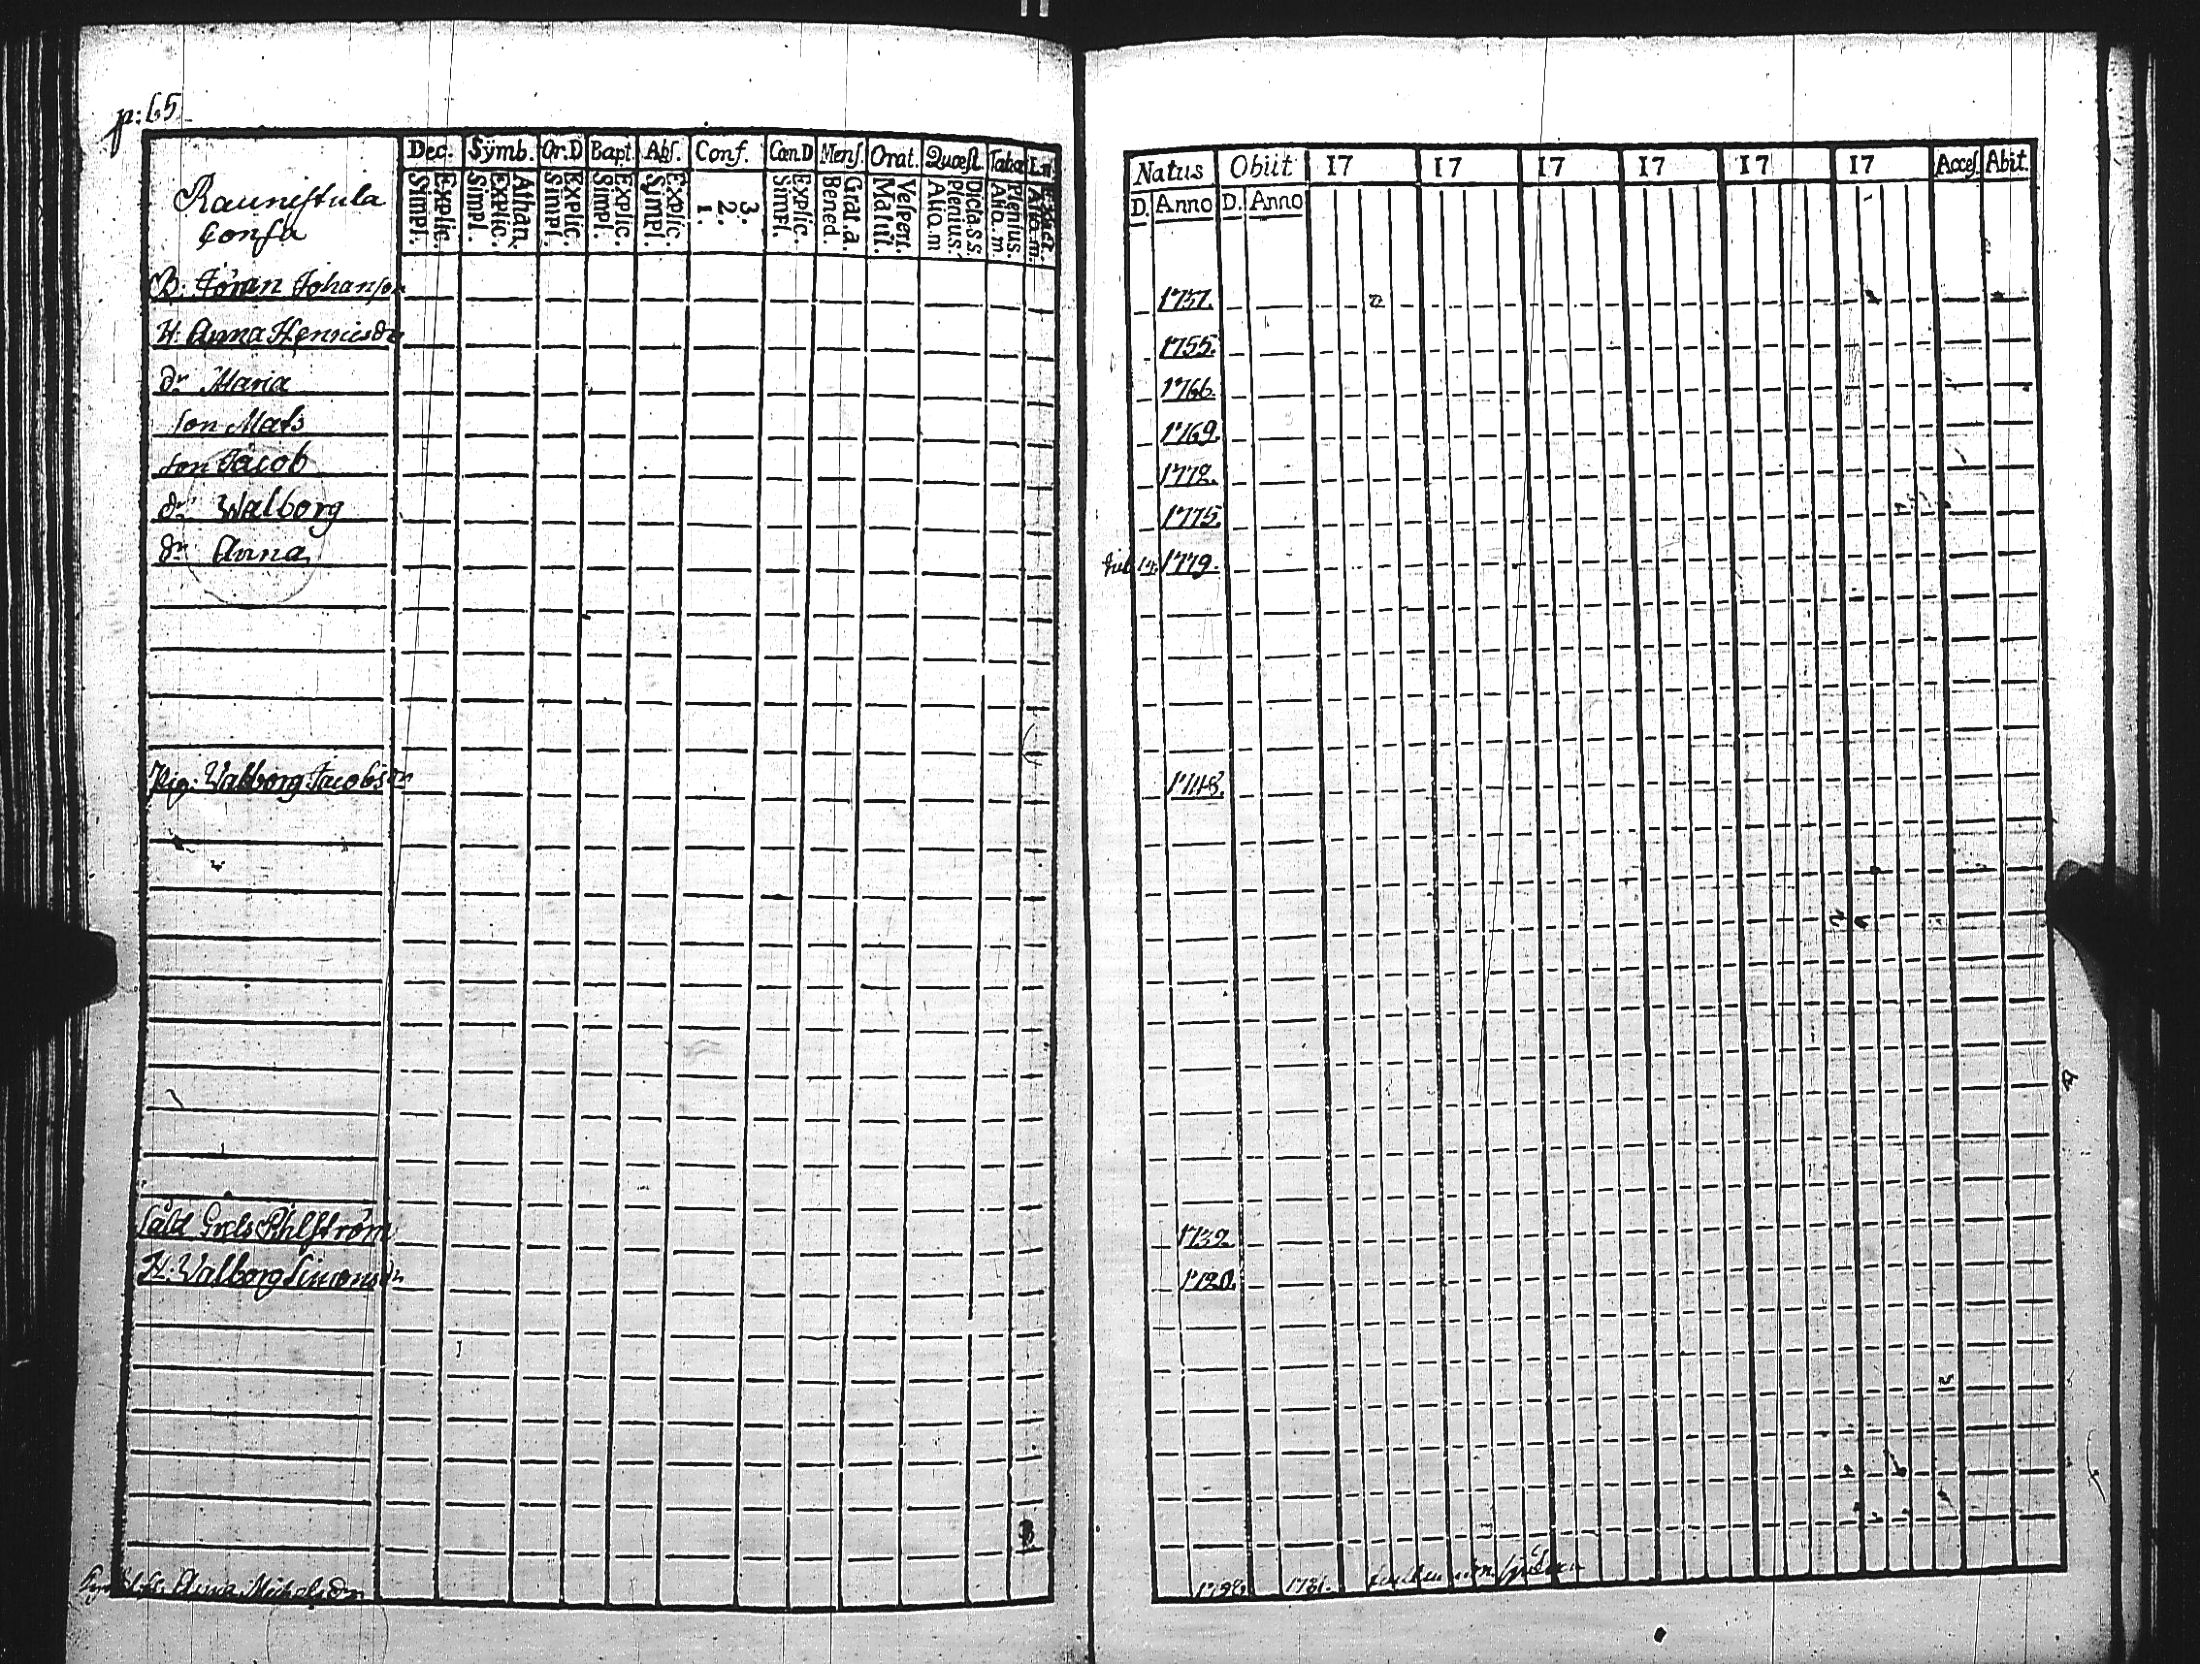 p: 65
Dec. Symb. Or.D Bapt. Abs. Conf. Cœn.D Mens. Orat. Quæst.
Simpl. Explic. Simpl. Explic. Athan. Simpl. Explic. Simpl. Explic. Sympl. Explic. 1. 2. 3. Simpl. Explic. Bened. Grat.a. Matut. Vesperi. Aliq.m Plenius. Dicta.s.s. Aliq.m Plenius.
Raunistula
Natus Obiit 17 17 17 17 17 17 Acces. Abit.
D. Anno D. Anno
B. Jöran Johanson 1757.
H. Anna Henricsdr 1755.
dr Maria 1766.
son Mats 1769.
son Jacob 1772.
dr Walborg 1775.
dr Anna Jul. 14. 1779.
Pig: Walborg Jacobsdr 1748.
Sald Grels Åhlström 1732
H: Valborg Simonsdr 1720.
Anna Michelsdr 1781.